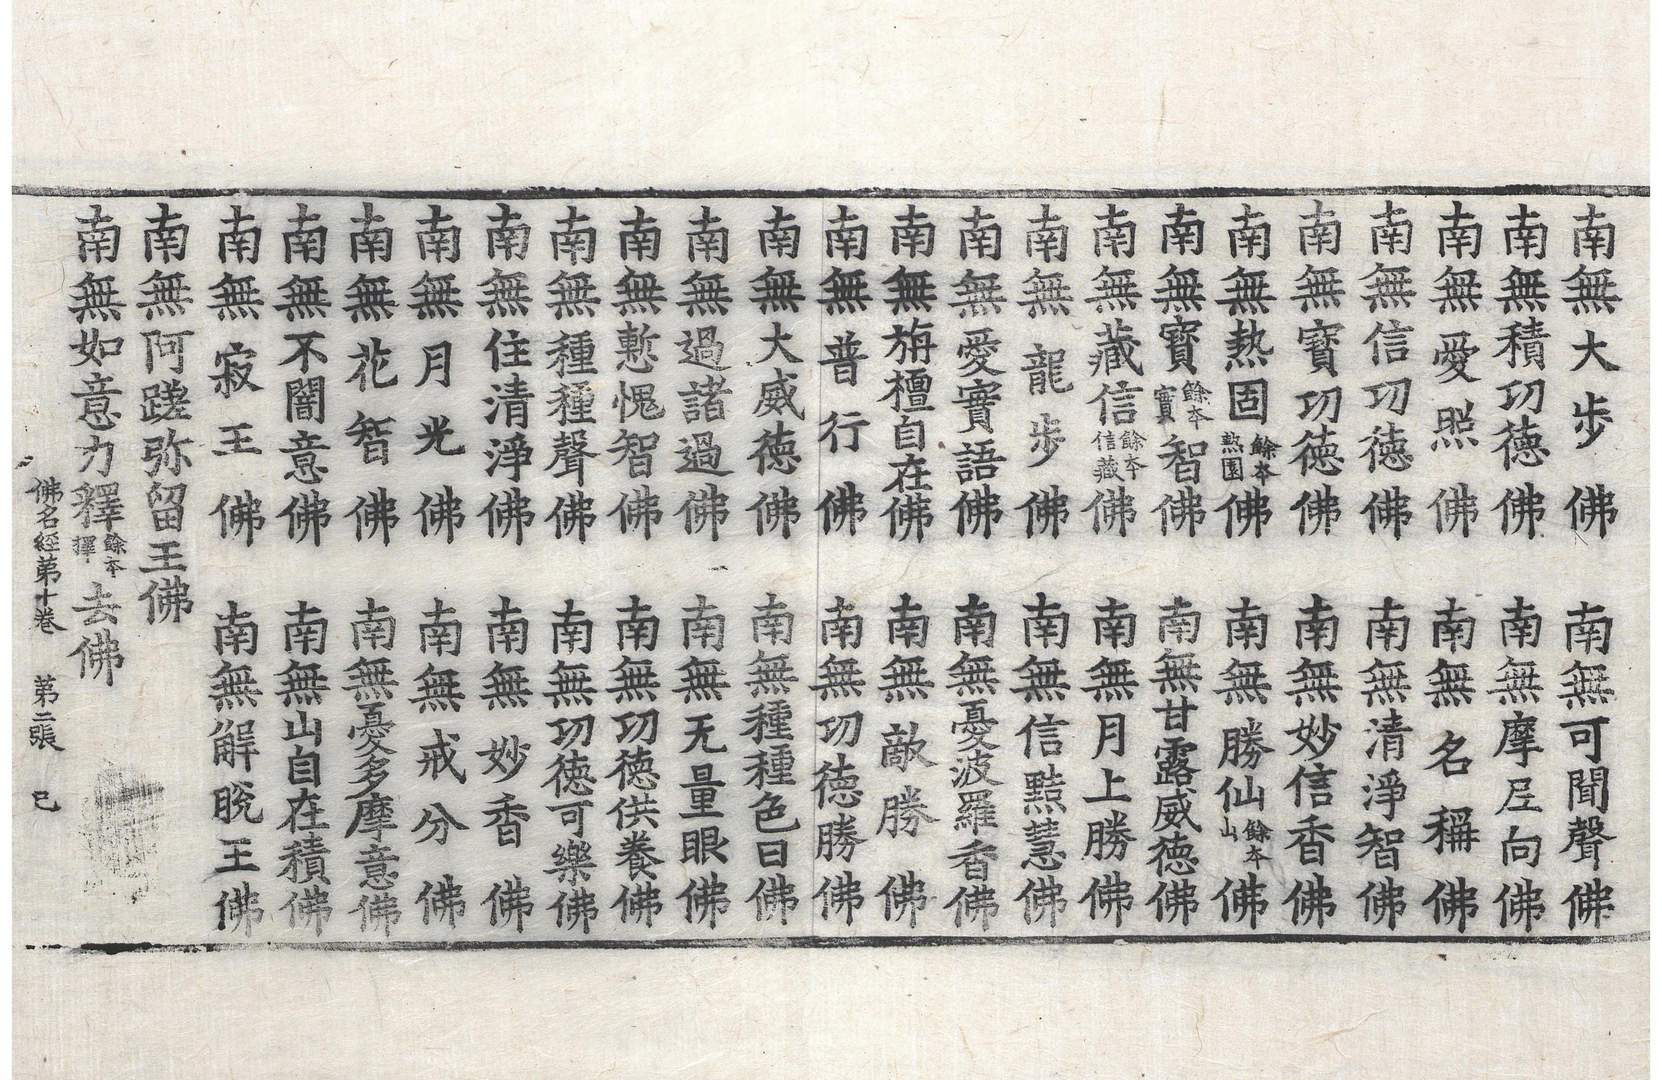 南無大步佛　南無可聞聲佛
南無積功德佛　南無摩尼向佛
南無愛照佛　南無名稱佛
南無信功德佛　南無清淨智佛
南無寶功德佛　南無妙信香佛
南無熱固餘本熱圍佛　南無勝仙餘本山佛
南無寶餘本實智佛　南無甘露威德佛
南無藏信餘本信藏佛　南無月上勝佛
南無龍步佛　南無信黠慧佛
南無愛實語佛　南無憂波羅香佛
南無旃檀自在佛　南無敵勝佛
南無普行佛　南無功德勝佛
南無大威德佛　南無種種色日佛
南無過諸過佛　南無无量眼佛
南無慙愧智佛　南無功德供養佛
南無種種聲佛　南無功德可樂佛
南無住清淨佛　南無妙香佛
南無月光佛　南無戒分佛
南無花智佛　南無憂多摩意佛
南無不闇意佛　南無山自在積佛
南無寂王佛　南無解脫王佛
南無阿蹉弥留王佛
南無如意力釋餘本擇去佛
佛名經第十卷　第二張　已